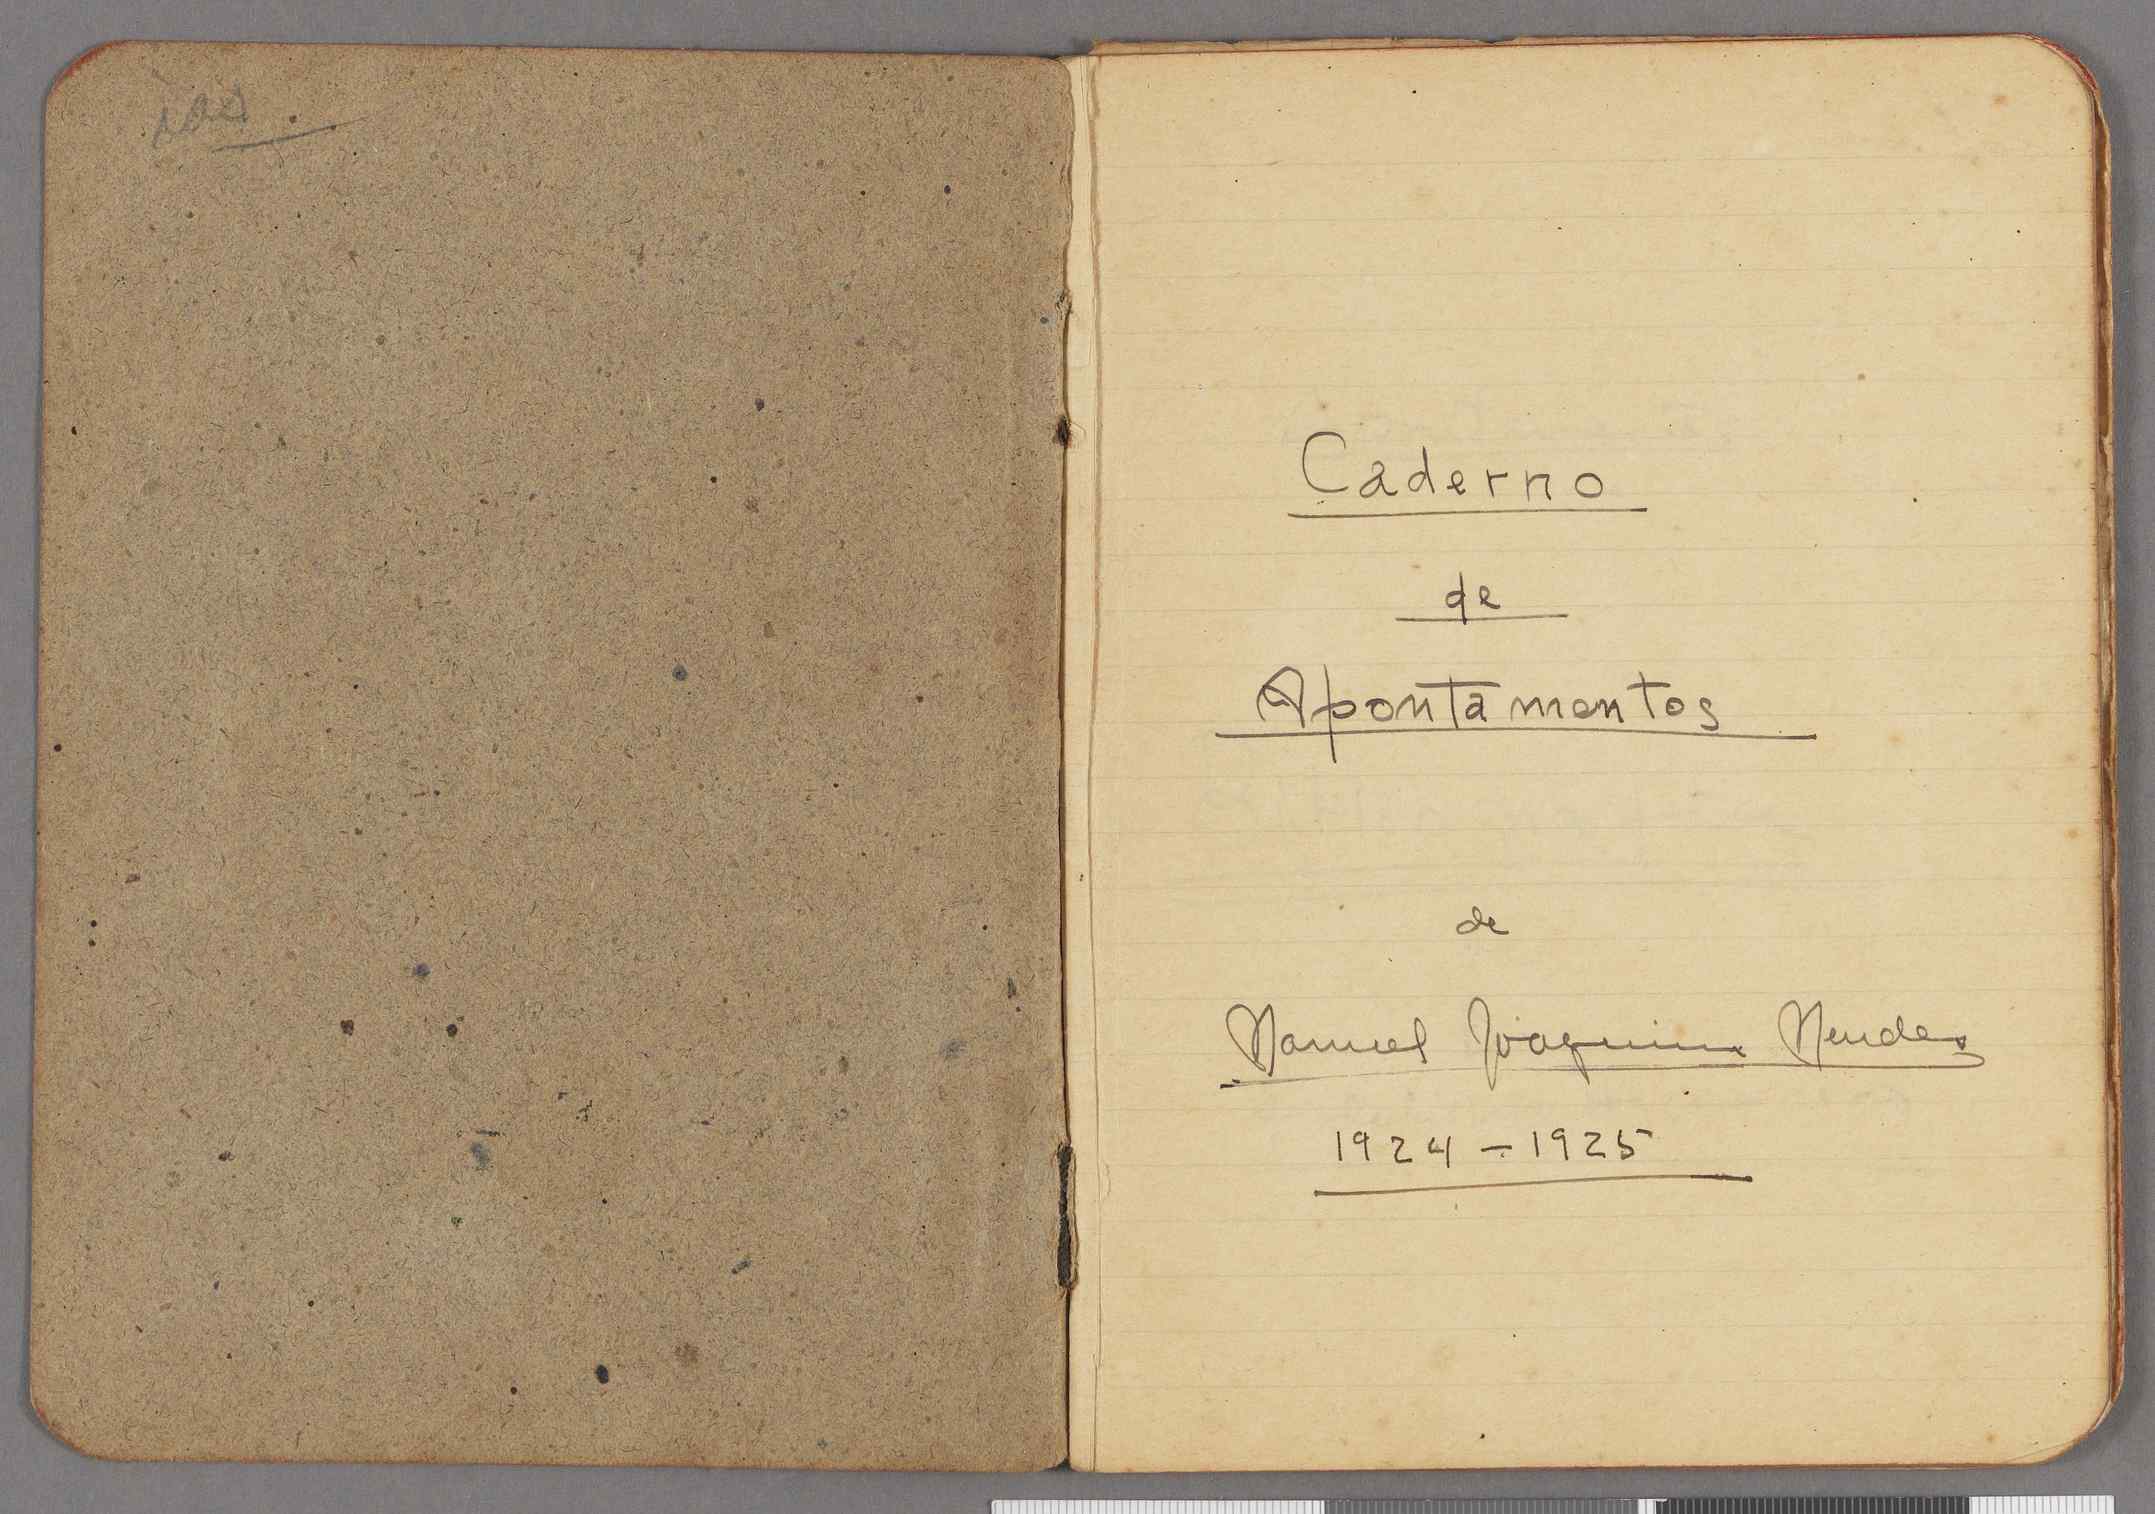 Caderno
de
Apontamentos
de
Manuel Joaquim Mendes
1924-1925